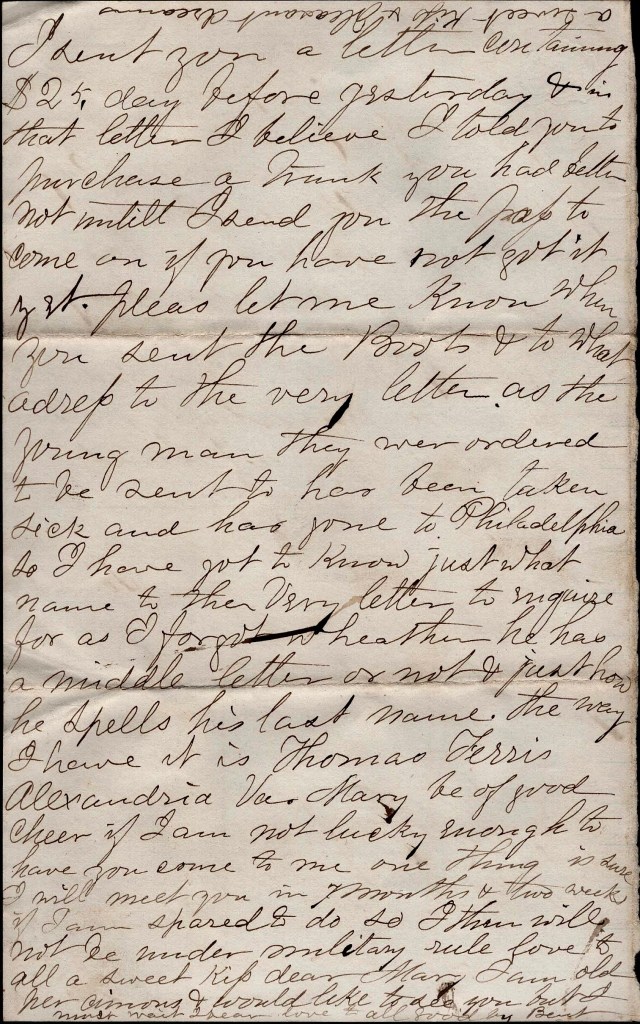 a sweet Kiss & pleasant dreams
I sent you a letter containing
$25, day before yesterday & in
that letter I believe I told you to
purchase a Trunk you had better
not untill I send you the pass to
come on if you have not got it
yet. pleas let me Know when
you sent the Boots & to what
adress to the very letter as the
young man they wer ordered
to be sent to has been taken
sick and has gone to Philadelphia
so I have got to Know just what
name to the very letter to enquire
for as I forgot wheather he has
a middle letter or not & just how
he spells his last name. the way
I have it is Thomas Ferris
Alexandria Va. Mary be of good
cheer if I am not lucky enough to
have you come to me one thing is sure
I will meet you in 7 months & two weeks
if I am spared to do so I then will
not be under military rule love to
all a sweet Kiss dear Mary I am old
& would like to see you but I
must wait love to all good by Bent